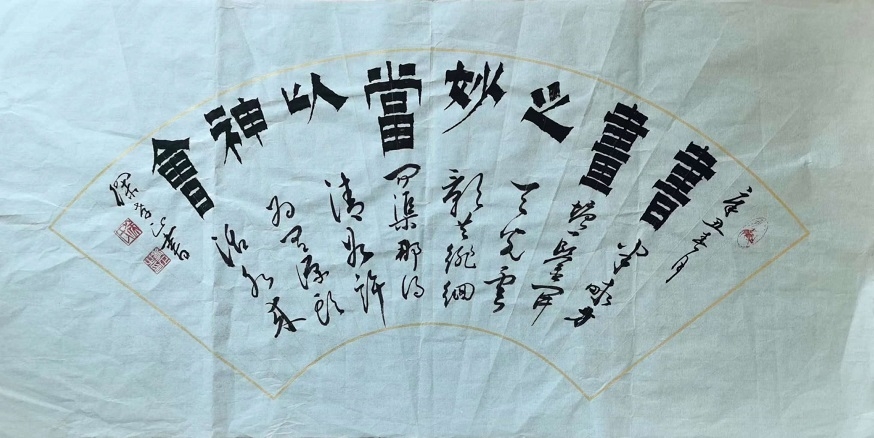 辛丑春月
書畫之妙當以神會
半畝方
塘一鑒開
天光雲
影共徘徊
問渠那得
清如許
為有源頭
活水來